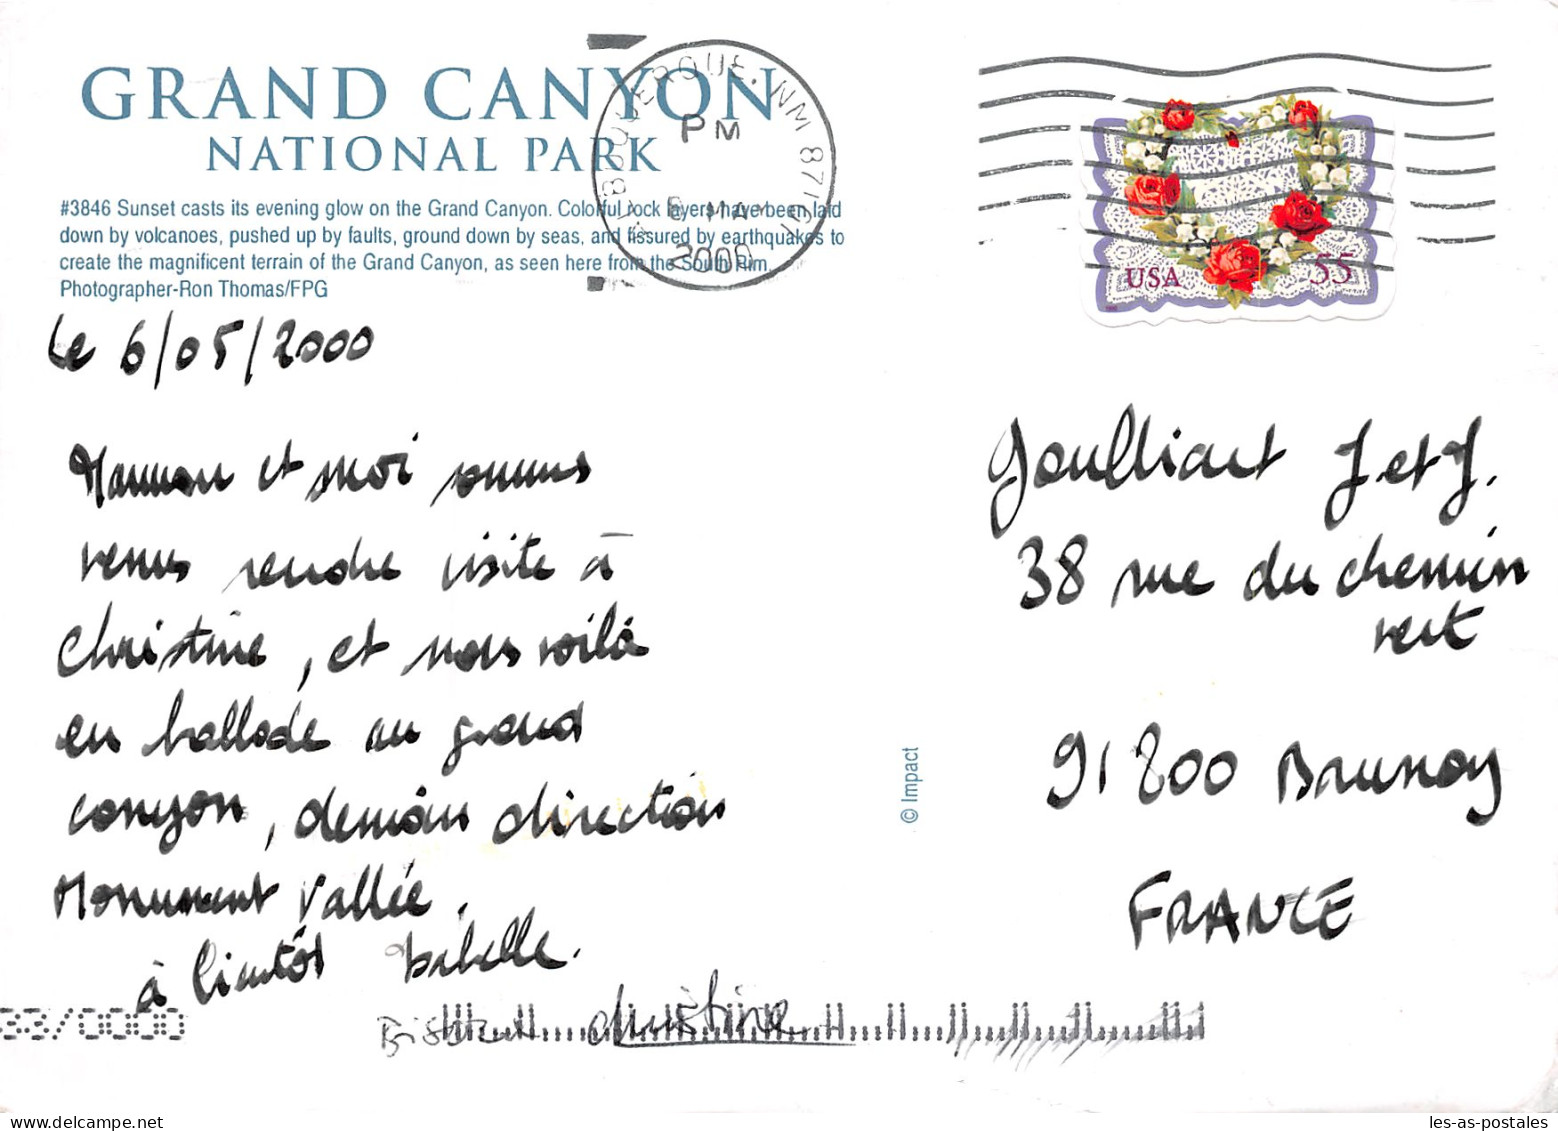 GRAND CANYON
NATIONAL PARK
#3846 Sunset casts its evening glow on the Grand Canyon. Colorful rock layers have been laid
down by volcanoes, pushed up by faults, ground down by seas, and fissured by earthquakes to
create the magnificent terrain of the Grand Canyon, as seen here from the South Rim.
Photographer-Ron Thomas/FPG
ALBUQUERQUE, NM 87101
PM
MAY
2000
USA 55
Le 6/05/2000
Maman et moi sommes
venus rendre visite à
Christine, et nous voilà
en ballade au grand
canyon, demain direction
Monument Vallée.
à bientôt Isabelle.
Bises Christine
Goulliart J et J.
38 rue du chemin
vert
91800 Brunoy
FRANCE
© Impact
33/0000
les-as-postales